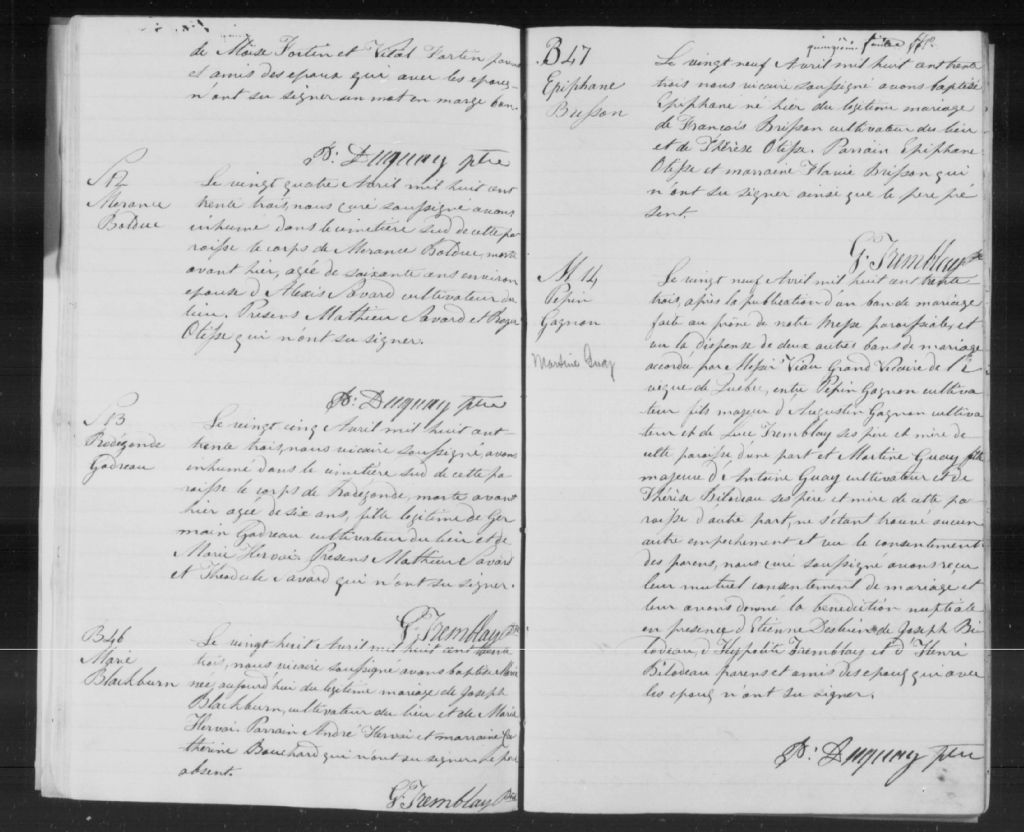 de Moïse Fortin et Vital Fortin parens
et amis des epoux qui avec les epoux
n'ont su signer un mot en marge bon.
P: Duguay ptre
S12
Merance
Bolduc
Le vingt quatre Avril mil huit cent
trente trois, nous curé soussigné avons
inhumé dans le cimetière sud de cette pa
roisse le corps de Merance Bolduc, morte
avant hier, agée de soixante ans environ
epouse d'Alexis Savard cultivateur du
lieu. Présens Mathieu Savard et Roger
Otisse qui n'ont su signer.
P: Duguay ptre
S13
Radégonde
Godreau
Le vingt cinq Avril mil huit cent
trente trois, nous vicaire soussigné, avons
inhumé dans le cimetière sud de cette pa
roisse le corps de Radégonde, morte avant
hier agée de six ans, fille legitime de Ger
main Godreau cultivateur du lieu et de
Marie Hervai. Presens Mathieu Savard
et Theodule Savard qui n'ont su signer.
G. Tremblay Ptre
B46
Marie
Blackburn
Le vingt huit Avril mil huit cent trente
trois, nous vicaire soussigné avons baptisé Marie
née aujourd'hui du legitime mariage de Joseph
Blackburn, cultivateur du lieu et de Marie
Hervai. Parrain André Hervai et marraine Ca
thérine Bouchard qui n'ont su signer. Le père
absent.
G. Tremblay Ptre
B47
Epiphane
Brisson
Le vingt neuf Avril mil huit cent trente
trois nous vicaire soussigné avons baptisé
Epiphane né hier du legitime mariage
de François Brisson cultivateur du lieu
et de Thérèse Otisse. Parrain Epiphane
Otisse et marraine Flavie Brisson qui
n'ont su signer ainsi que le pere pré
sent.
G. Tremblay Ptre
M14
Pepin
Gagnon
Martine Guay
Le vingt neuf Avril mil huit cent trente
trois, après la publication d'un ban de mariage
faite au prône de notre Messe paroissiale, et
vu la dispense de deux autres bans de mariage
accordée par Messir Viau Grand Vicaire de l'E
vêque de Quebec, entre Pepin Gagnon cultiva
teur fils majeur d'Augustin Gagnon cultiva
teur et de Luce Tremblay ses père et mère de
cette paroisse d'une part et Martine Guay fille
majeure d'Antoine Guay cultivateur et de
Thérèse Bilodeau ses père et mère de cette pa
roisse d'autre part, ne s'étant trouvé aucun
autre empechement et vu le consentement
des parens, nous curé soussigné avons reçu
leur mutuel consentement de mariage et
leur avons donné la benediction nuptiale
en presence d'Etienne Desbiens de Joseph Bi
lodeau, d'Hyppolite Tremblay et d'Henri
Bilodeau parens et amis des epoux qui avec
les epoux n'ont su signer.
P: Duguay ptre